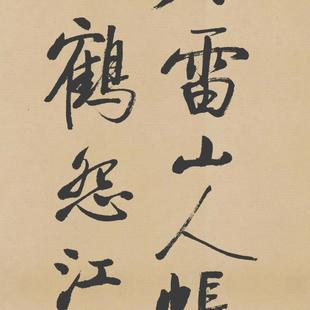 雷山人帳
鶴怨江